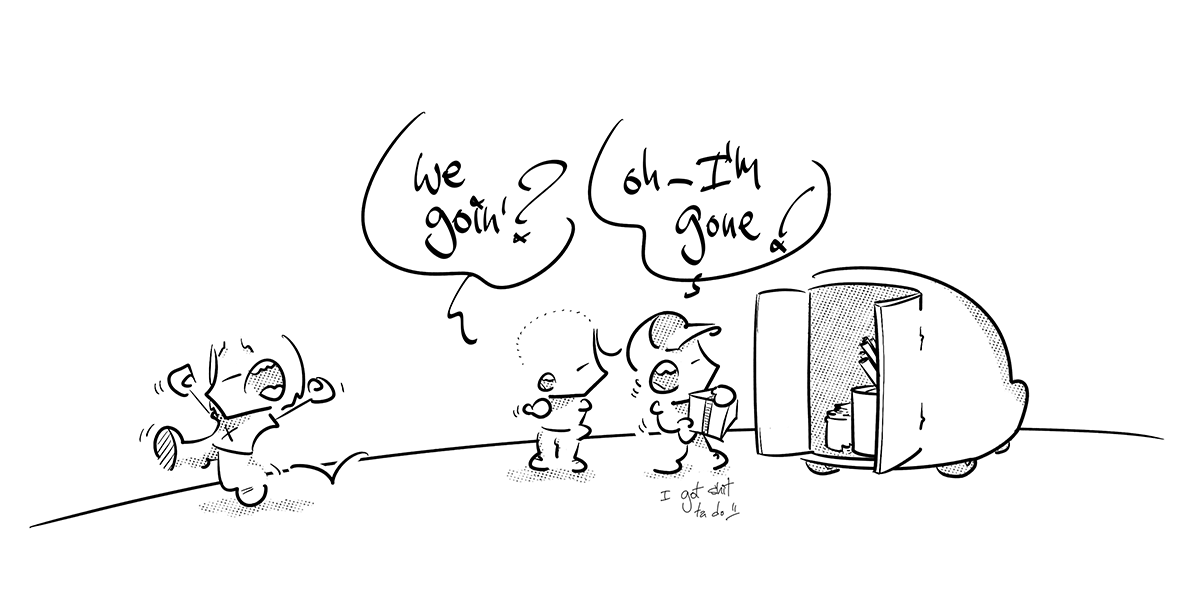 we
goin'?
oh - I'm
gone!
I got shit
ta do!!